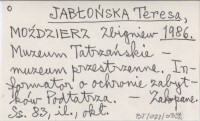 JABŁOŃSKA Teresa,
MOŹDZIERZ Zbigniew 1986.
Muzeum Tatrzańskie -
muzeum przestrzenne. In-
formator o ochronie zabyt-
ków Podtatrza. - Zakopane.
Ss. 83, il., okł.